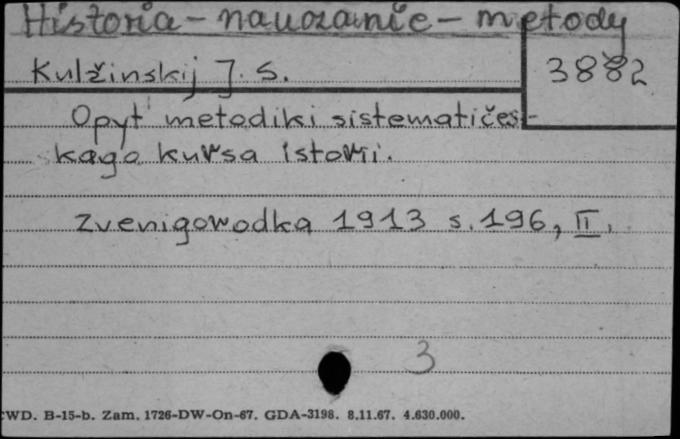 Historia - nauczanie - metody
Kulžinskij J. S.
3882
Opyt metodiki sistematičes-
kago kursa istorii.
Zvenigorodka 1913 s. 196, II.
3
CWD. B-15-b. Zam. 1726-DW-On-67. GDA-3198. 8.11.67. 4.630.000.